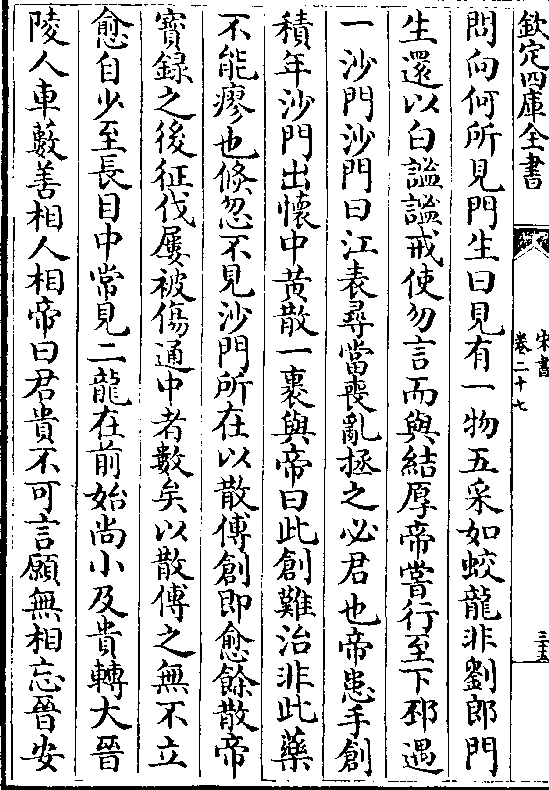 欽定四庫全書
宋書
卷二十七
三十五
問向何所見門生曰見有一物五采如蛟龍非劉郎門
生還以白謐謐戒使勿言而與結厚帝嘗行至下邳遇
一沙門沙門曰江表尋當喪亂拯之必君也帝患手創
積年沙門出懷中黄散一裹與帝曰此創難治非此藥
不能瘳也倐忽不見沙門所在以散傅創即愈餘散帝
寳録之後征伐屢被傷通中者數矣以散傅之無不立
愈自少至長目中常見二龍在前始尚小及貴轉大晉
陵人車藪善相人相帝曰君貴不可言願無相忘晉安